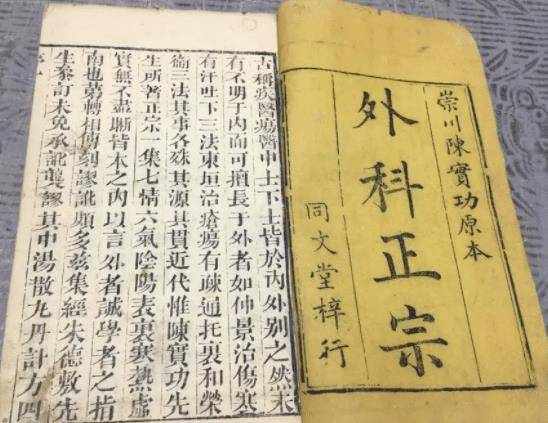 崇川陳實功原本
外科正宗
同文堂梓行
古稱疾醫瘍醫中士下士皆於內外別之然未
有不明于內而可擅長于外者如仲景治傷寒
有汗吐下三法東垣治瘡瘍有疎通托裏和榮
衛三法其事各殊其源具貫近代惟陳實功先
生所著正宗一集七情六氣陰陽表裏寒熱虛
實無不盡晰皆本之內以言外者誠學者之指
南也第轉相傳刻謬訛頗多茲集經朱德敷先
生參訂未免承訛襲謬其中湯散丸丹計方四